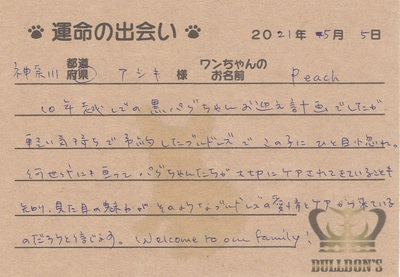 運命の出会い 2021年5月5日
神奈川 都道府県 アシキ 様 ワンちゃんのお名前 Peach
10年越しでの黒パグちゃんお迎え計画でしたが
軽い気持ちで予約したブルドンズでこの子にひと目惚れ。
何世代にも亘ってパグちゃんたちが大切にケアされてきていることも
知り、見た目の魅力がそのようなブルドンズの愛情とケアから来ている
のだろうと信じます。Welcome to our family!
BULLDON'S